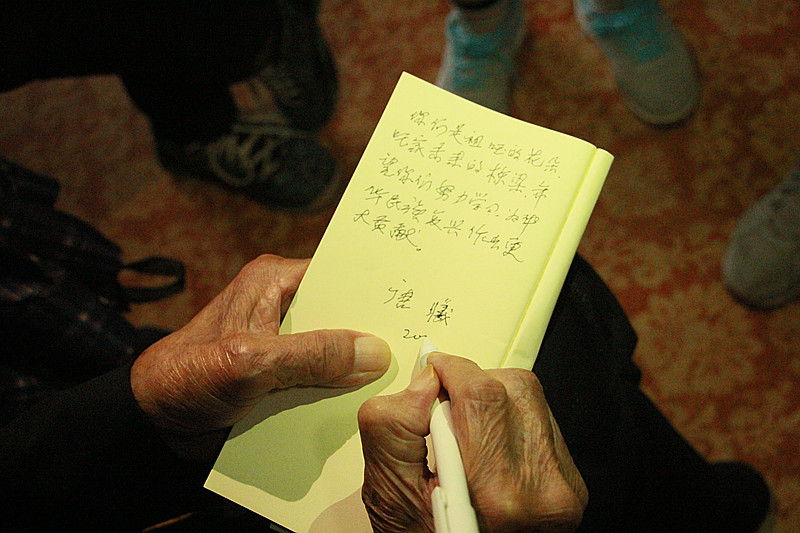 你们是祖国的花朵.
国家未来的栋梁.希
望你们努力学习.为中
华民族复兴作出更
大贡献。
20